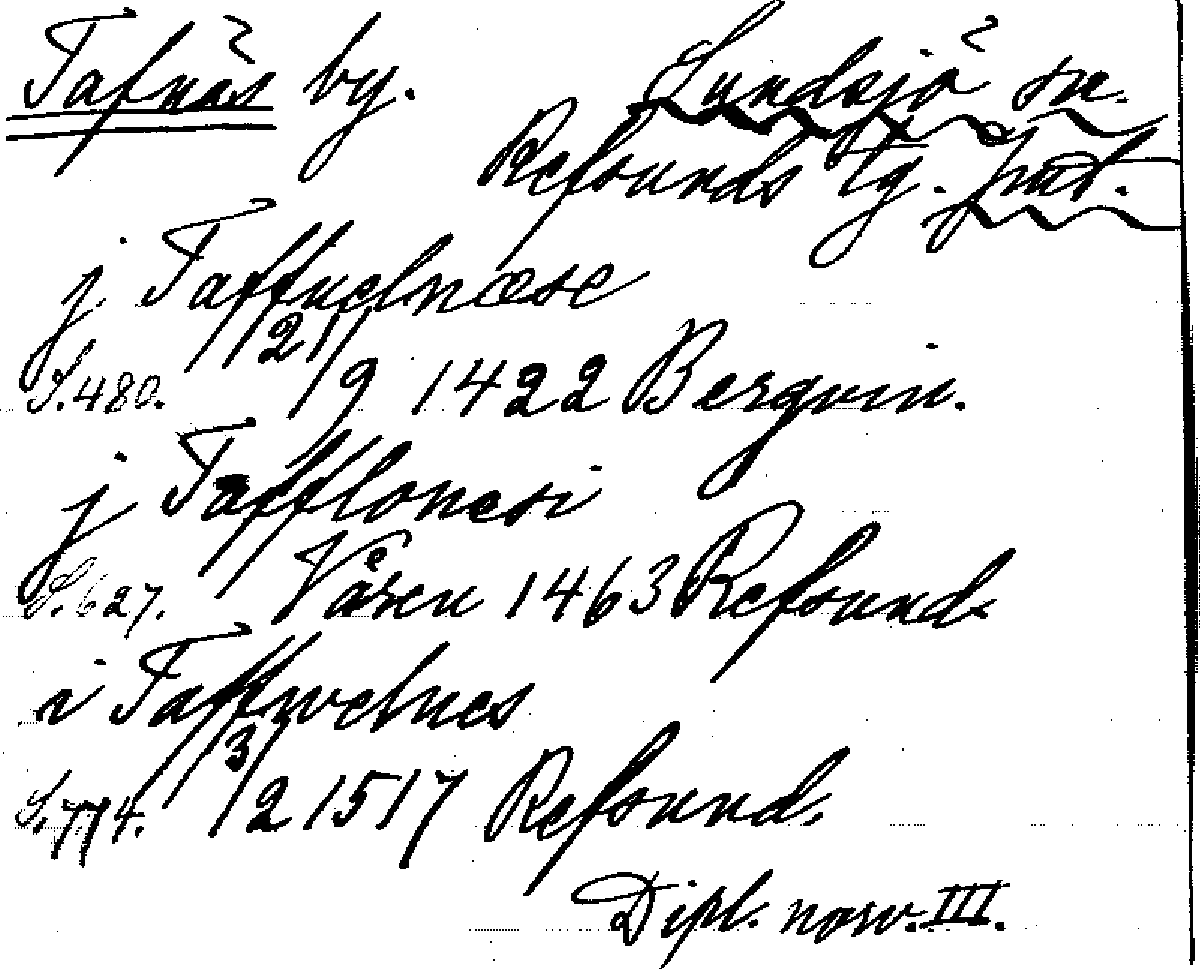 Tafnäs by. Sundsjö sn.
Refsunds tg. Jmtl.
j Taffuelnæse
S.480. 21/9 1422 Berqvin.
j Tafflonesi
S.627. Våren 1463 Refsund.
i Taffwelnes
S.774. 3/2 1517 Refsund.
Dipl. norv. III.